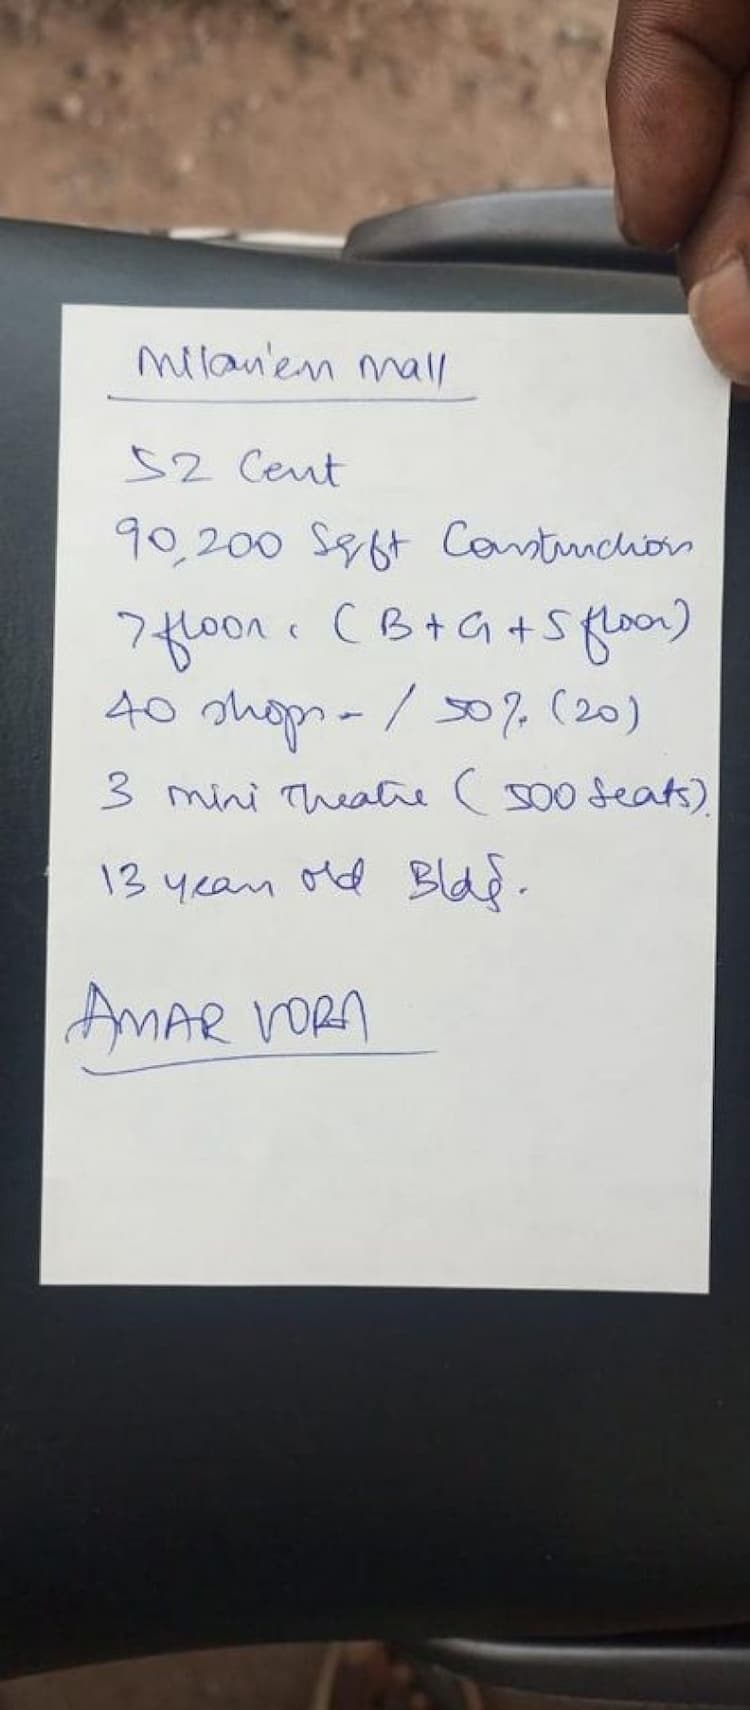 Milan'em Mall
52 Cent
90,200 Sqft Construction
7 floor. (B+G+5 floor)
40 shops - / 50% (20)
3 mini Theatre (500 Seats).
13 year old Bldg.
AMAR VORA